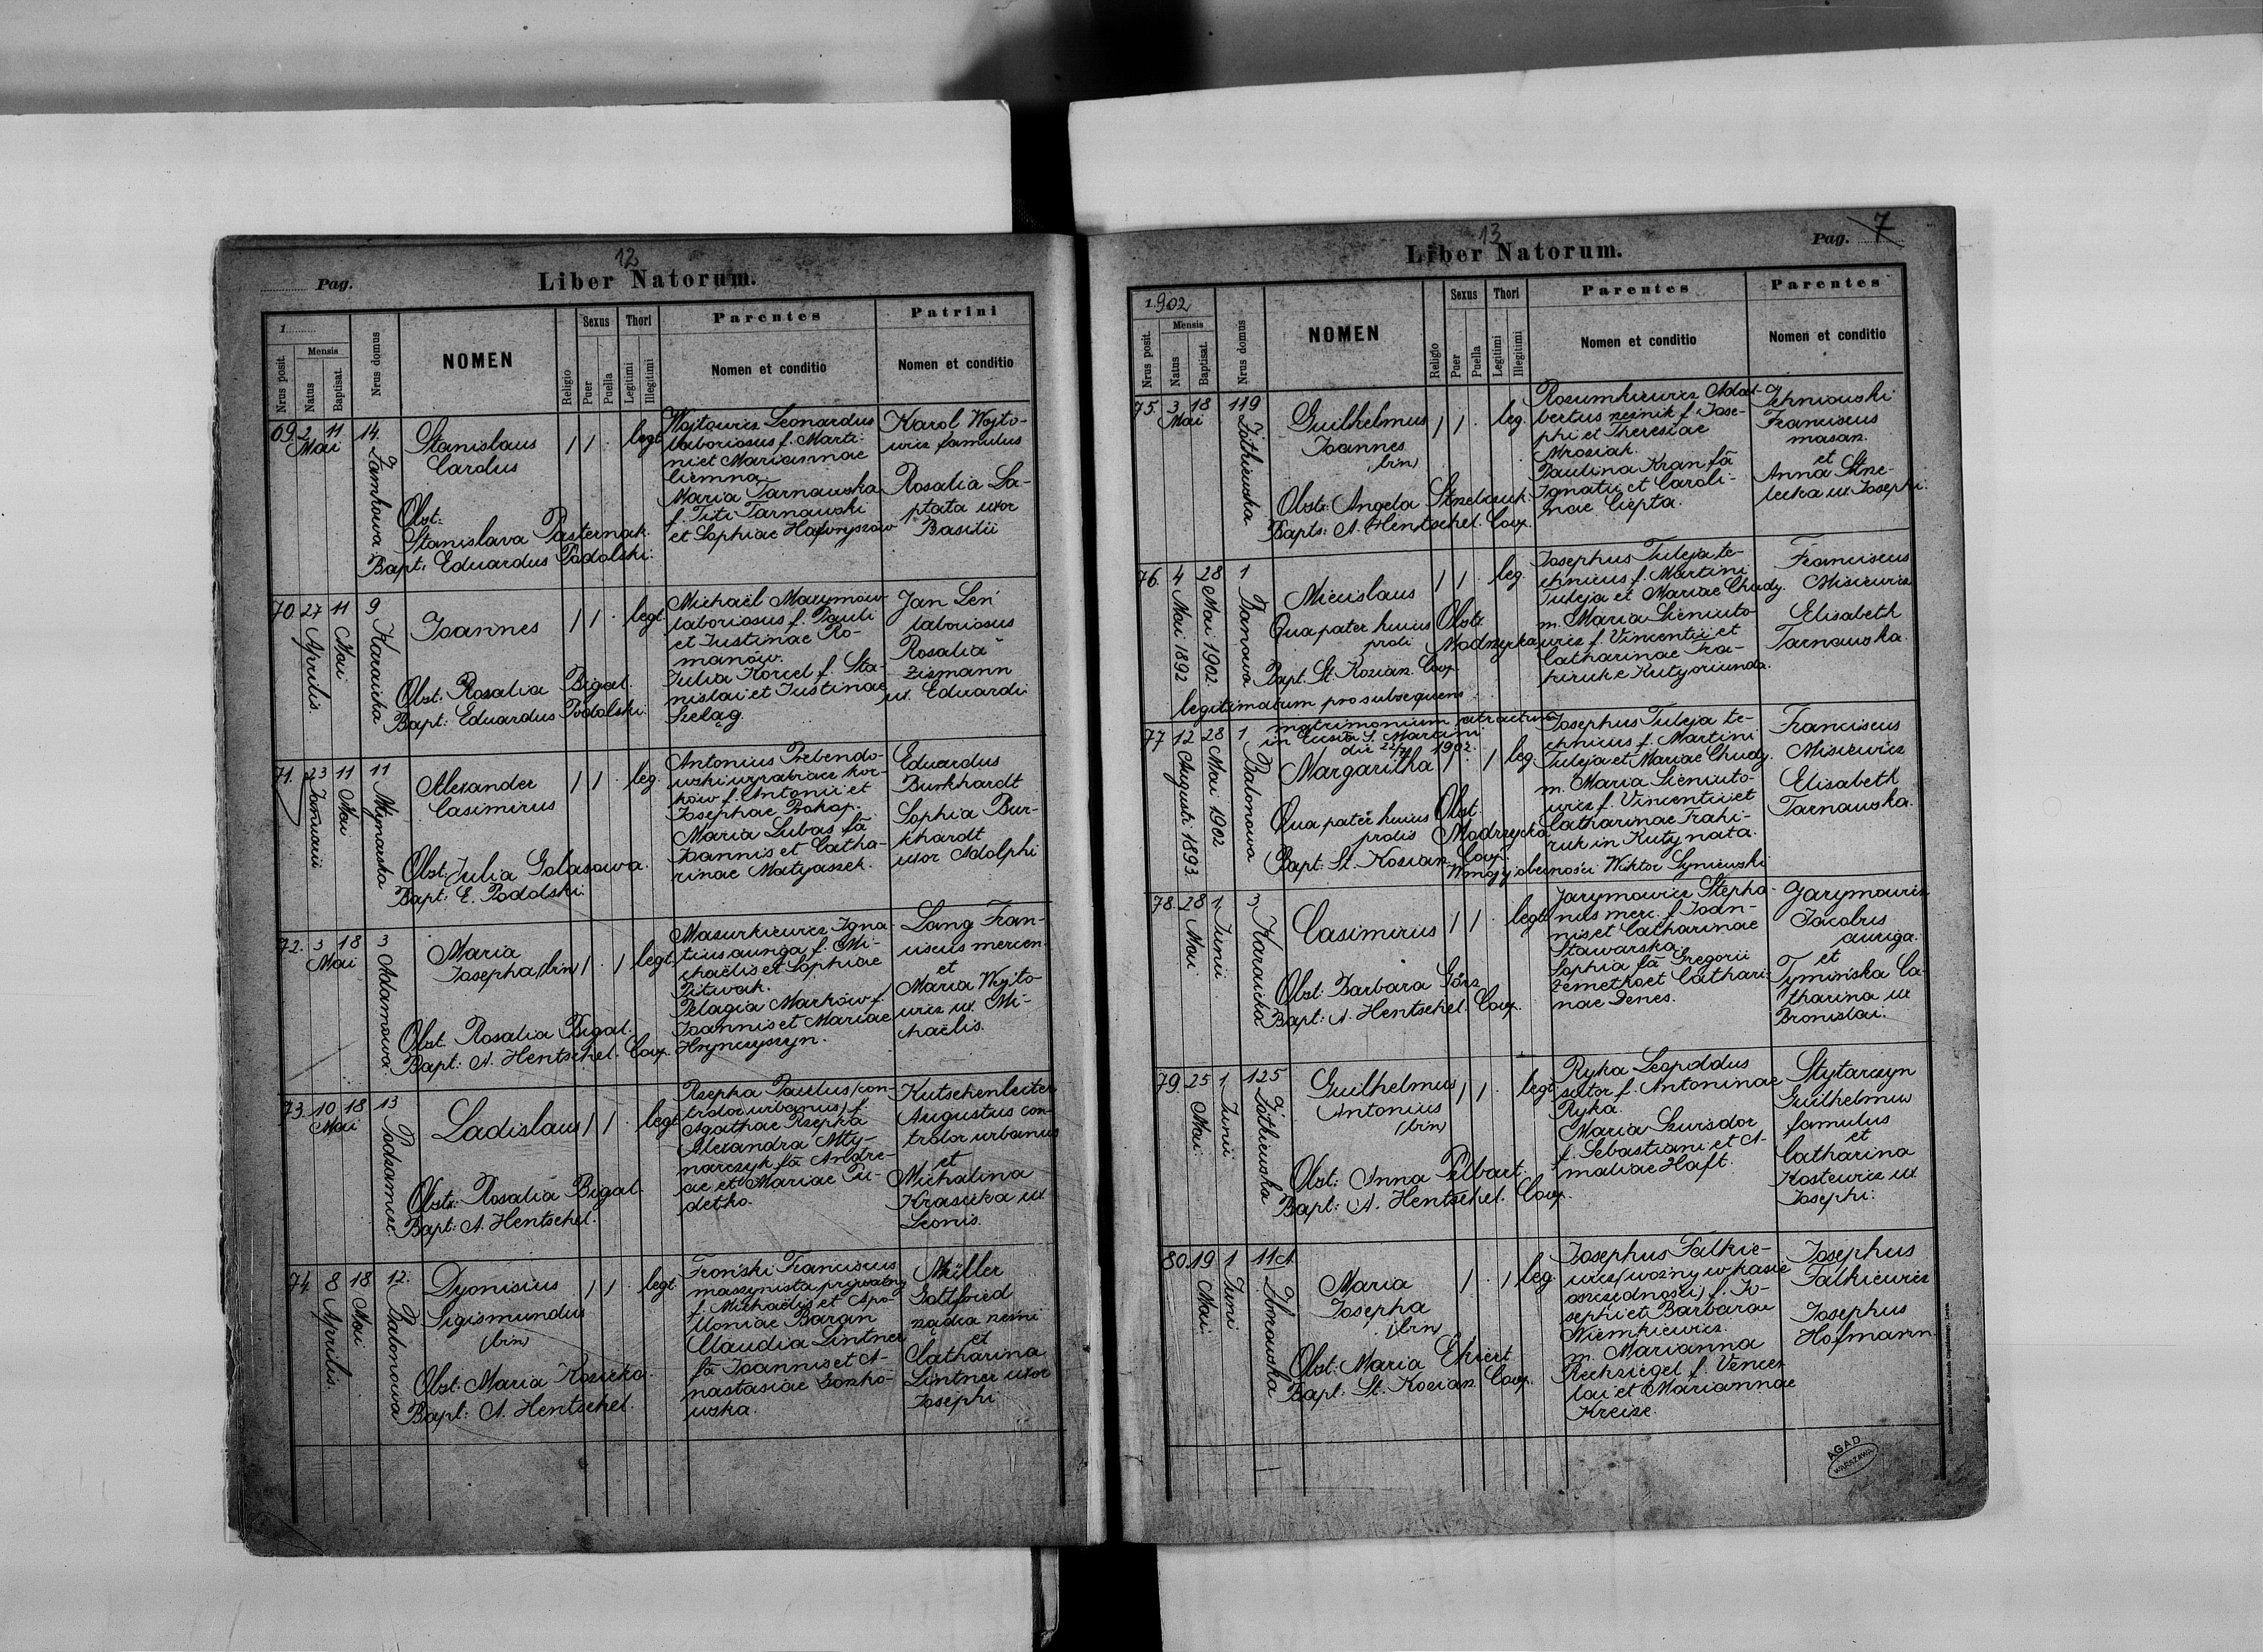 12
Pag.
Liber Natorum.
1
Nrus posit.
Mensis
Natus
Baptisat.
Nrus domus
NOMEN
Religio
Sexus
Puer
Puella
Thori
Legitimi
Illegtimi
Parentes
Nomen et conditio
Patrini
Nomen et conditio
69. 2 11 Mai
14. Zamkowa
Stanislaus
Carolus
Obst:
Stanislava Pasternak.
Bapt: Eduardus Podolski.
1 1 . legt.
Wojtowicz Leonardus
laboriosus f. Marti-
ni et Mariannae
Ciemna
Maria Tarnawska
f. Titi Tarnawski
et Sophiae Hawryszow
Karol Wojto-
wicz famulus
Rosalia Ła-
ptata uxor
Basilii
70. 27 Aprilis. 11 Mai
9 Karaicka
Joannes
Obst. Rosalia Bigal.
Bapt: Eduardus Podolski.
1 1 . legt.
Michaël Maxymów
laboriosus f. Pauli
et Justinae Ro-
manów.
Julia Korcel f. Sta-
nislai et Justinae
Szeląg.
Jan Leń
laboriosus
Rosalia
Zismann
ux. Eduardi
71. 23 Januarii 11 Mai
11 Młynarska
Alexander
Casimirus
Obst. Julia Golasowa.
Bapt: E. Podolski.
1 1 . leg.
Antonius Trebendo-
wski wyrabiacz kor-
ków f. Antonii et
Josephae Prokop.
Maria Lubas fa
Joannis et Catha-
rinae Matyaszek.
Eduardus
Burkhardt
Sophia Bur-
khardt
uxor Adolphi
72. 3 18 Mai
3 Adamowa.
Maria
Josepha (brn)
Obst. Rosalia Bigal.
Bapt: A. Hentschel. Coop.
1 . 1 legt.
Mazurkiewicz Igna-
tius auriga f. Mi-
chaëlis et Sophiae
Pitwak.
Pelagia Markow f.
Joannis et Mariae
Hrynczyszyn.
Lang Fran-
ciscus mercen.
et
Maria Wojto-
wicz ux. Mi-
chaëlis.
73. 10 18 Mai
13 Podzamcze
Ladislaus
Obst: Rosalia Bigal.
Bapt: A. Hentschel.
1 1 . legt
Rzepka Paulus (con-
trolor urbanus) f.
Agathae Rzepka
Alexandra Mły-
narczyk fa Andre-
ae et Mariae Pu-
detko.
Kutschenleiter
Augustus con-
trolor urbanus
et
Michalina
Krasicka ux.
Leonis.
74. 8 Aprilis. 18 Mai
12. Balonowa
Dyonisius
Sigismundus
(brn)
Obst. Maria Kozicka.
Bapt: A. Hentschel.
1 1 . legt.
Froński Franciscus
maszynista prywatny
f. Michaëlis et Apo-
lloniae Baran
Claudia Lintner
fa Joannis et A-
nastasiae
wska.
Müller
Gottfried
rządca rzeźni
et
Catharina
Lintner uxor
Josephi
13
Liber Natorum.
Pag. 7
1902
Nrus posit.
Mensis
Natus
Baptisat.
Nrus domus
NOMEN
Religio
Sexus
Puer
Puella
Thori
Legitimi
Illegitimi
Parentes
Nomen et conditio
Parentes
Nomen et conditio
75. 3 18 Mai
119 Żółkiewska
Guilhelmus
Joannes
(brn)
Obst: Angela Strzelczuk.
Bapts: A. Hentschel. Coop.
1 1 . leg.
Rozumkiewicz Adal-
bertus rzeźnik f. Jose-
phi et Theresiae
Mroziak.
Paulina Kran fa
Ignatii et Caroli-
nae Ciepta.
Franciscus
masar.
et
Anna Strze-
lecka ux. Josephi.
76. 4 Mai 1892 28 Mai 1902.
1 Banowa
Miecislaus
Qua pater huius
proli
Obst:
Madrzycka
Bapt. St. Kozian. Coop.
legitimatum pro subsequens
matrimonium
in Eccsia S. Martini
die 22/7 1902.
1 1 . leg.
Josephus Tuleja te-
chnicus f. Martini
Tuleja et Mariae Chudy.
m. Maria Sieniuto-
wicz f. Vincentii et
Catharinae Tra-
hiruk e Kuty oriunda.
Franciscus
Misiewicz
Elisabeth
Tarnawska.
77 12 Augusti 1893. 28 Mai 1902
1 Balonowa
Margaritha
Qua pater huius
prolis
Obst.
Madrzycka
Bapt: St. Kozian. Coop.
W mojej obecności Wiktor Syniewski
1 . 1 leg.
Josephus Tuleja te-
chnicus f. Martini
Tuleja et Mariae Chudy.
m. Maria Sieniuto-
wicz f. Vincentii et
Catharinae Trahi-
ruk in Kuty nata.
Franciscus
Misiewicz
Elisabeth
Tarnawska.
78. 28 Mai 1 Junii
3 Karaicka
Casimirus
Obst. Barbara Górz
Bapt: A. Hentschel. Coop.
1 1 . legt.
Jarymowicz Stepha-
nus merc. f. Joan-
nis et Catharinae
Stawarska.
Sophia fa Gregorii
Zemetko et Cathari-
nae Denes.
Jarymowicz
Jacobus
auriga.
et
Tymińska Ca-
tharina ux
Bronislai.
79. 25 Mai. 1 Junii
125 Żółkiewska
Guilhelmus
Antonius
(brn)
Obst: Anna Pelbart.
Bapt: A. Hentschel. Coop.
1 1 . legt.
Ryka Leopoldus
sutor f. Antoninae
Ryka.
Maria Szuisdor
f. Sebastiani et A-
maliae Haft.
Stytarczyn
Guilhelmus
famulus
et
Catharina
Kostewicz ux.
Josephi.
80. 19 Mai. 1 Junii
11A
Maria
Josepha
(brn)
Obst: Maria Ehiert
Bapt: St. Kozian. Coop.
1 . 1 leg.
Josephus Falkie-
wicz (woźny w kasie
oszczędności) f. Jo-
sephi et Barbarae
Niemkiewicz.
m. Marianna
Rechziegel f. Vences
lai et Mariannae
Kreize.
Josephus
Falkiewicz
Josephus
Hofmann.
AGAD
WARSZAWA